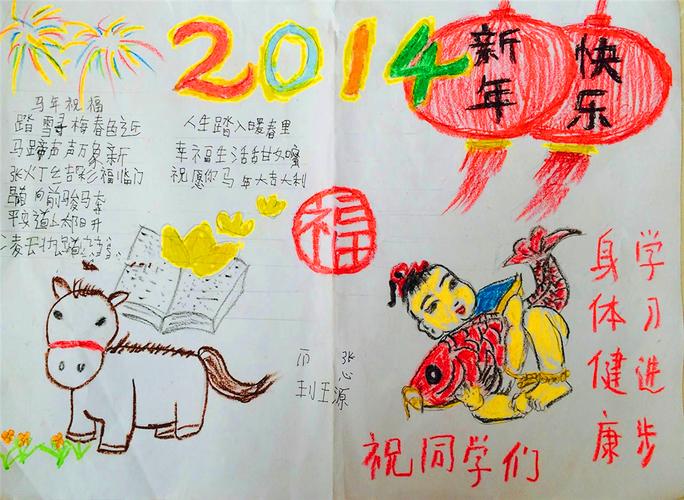 2014
新年
快乐
马年祝福
踏雪寻梅春
马蹄声声万象新
张灯结彩福临门
向前骏马奔
平安道上太阳升
凌云
人生踏入暖春里
幸福生活甜如蜜
祝愿你马年大吉大利
福
张心源
祝同学们
学习进步
身体健康